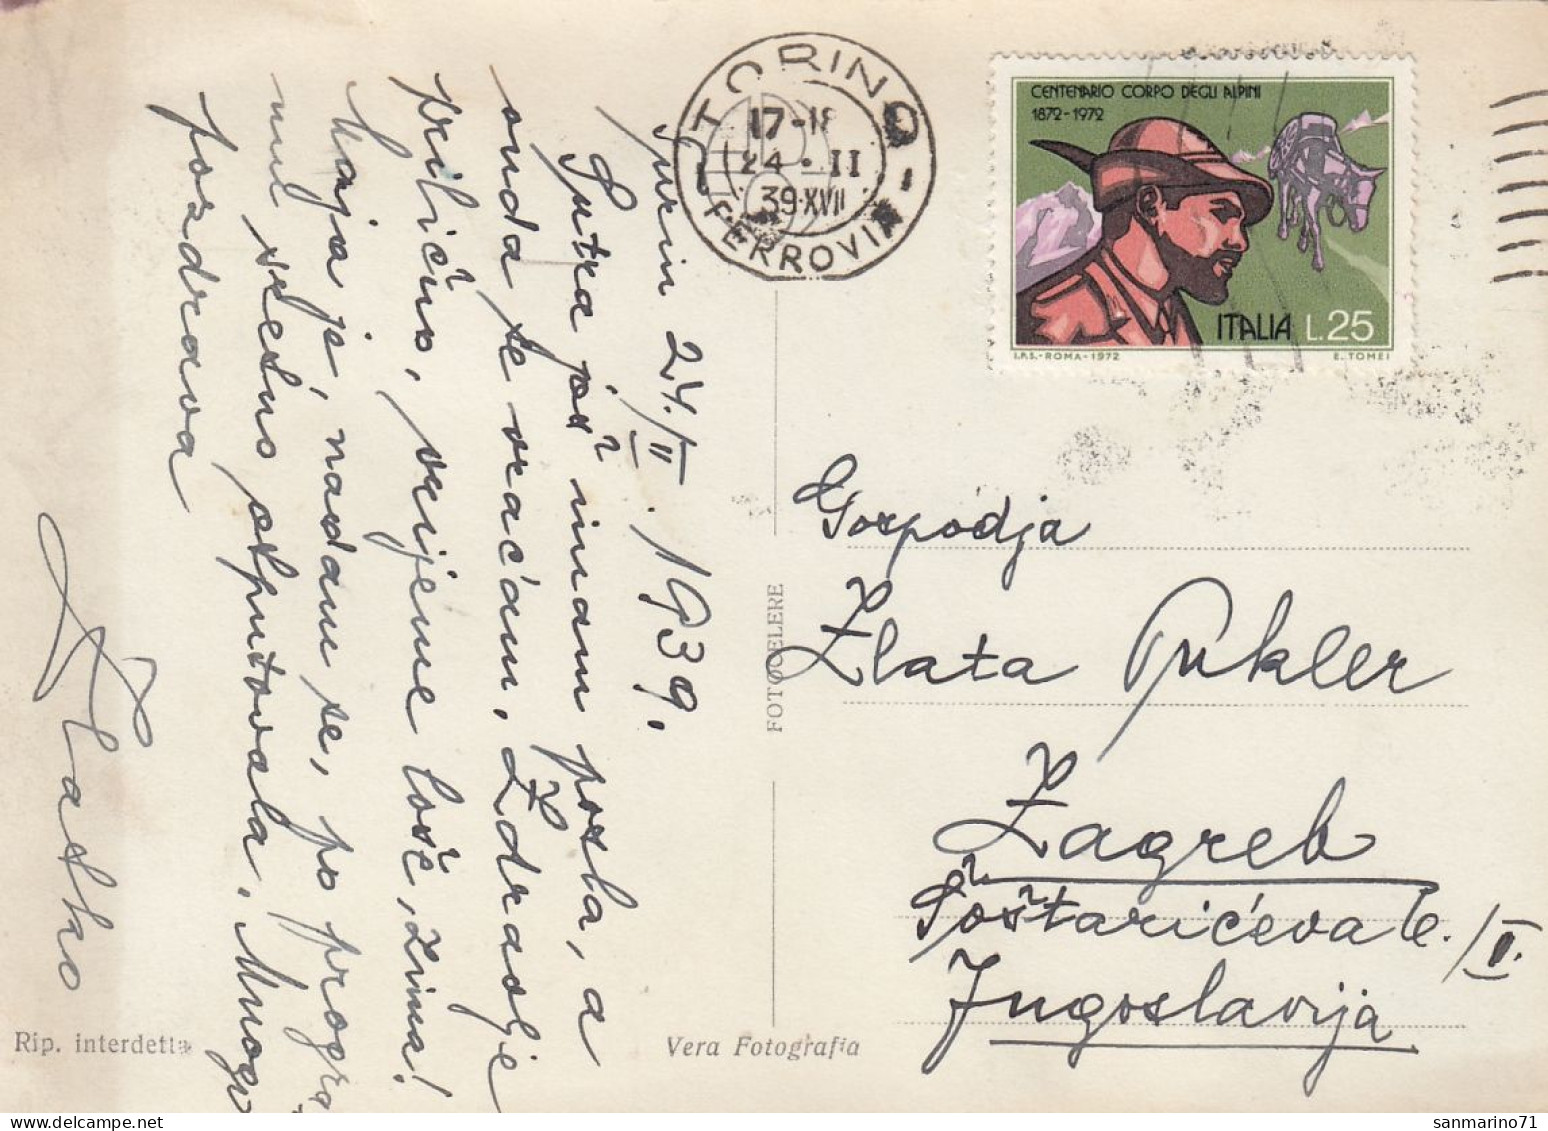 TORINO
17-18
24 · II
39·XVII
FERROVIA
CENTENARIO CORPO DEGLI ALPINI
1872-1972
ITALIA L.25
I.P.S.-ROMA-1972
E. TOMEI
Turin 24./II. 1939.
Sutra još imam posla, a
onda se vraćam. Zdravlje
prilično, vrijeme loše, zima!
Maja je, nadam se, po
sretno otputovala. Mnogo
pozdrava
Vlatko
Gospodja
Zlata Pukler
Zagreb
Šoštarićeva 6./I.
Jugoslavija
FOTOCELERE
Rip. interdetta
Vera Fotografia
sanmarino71